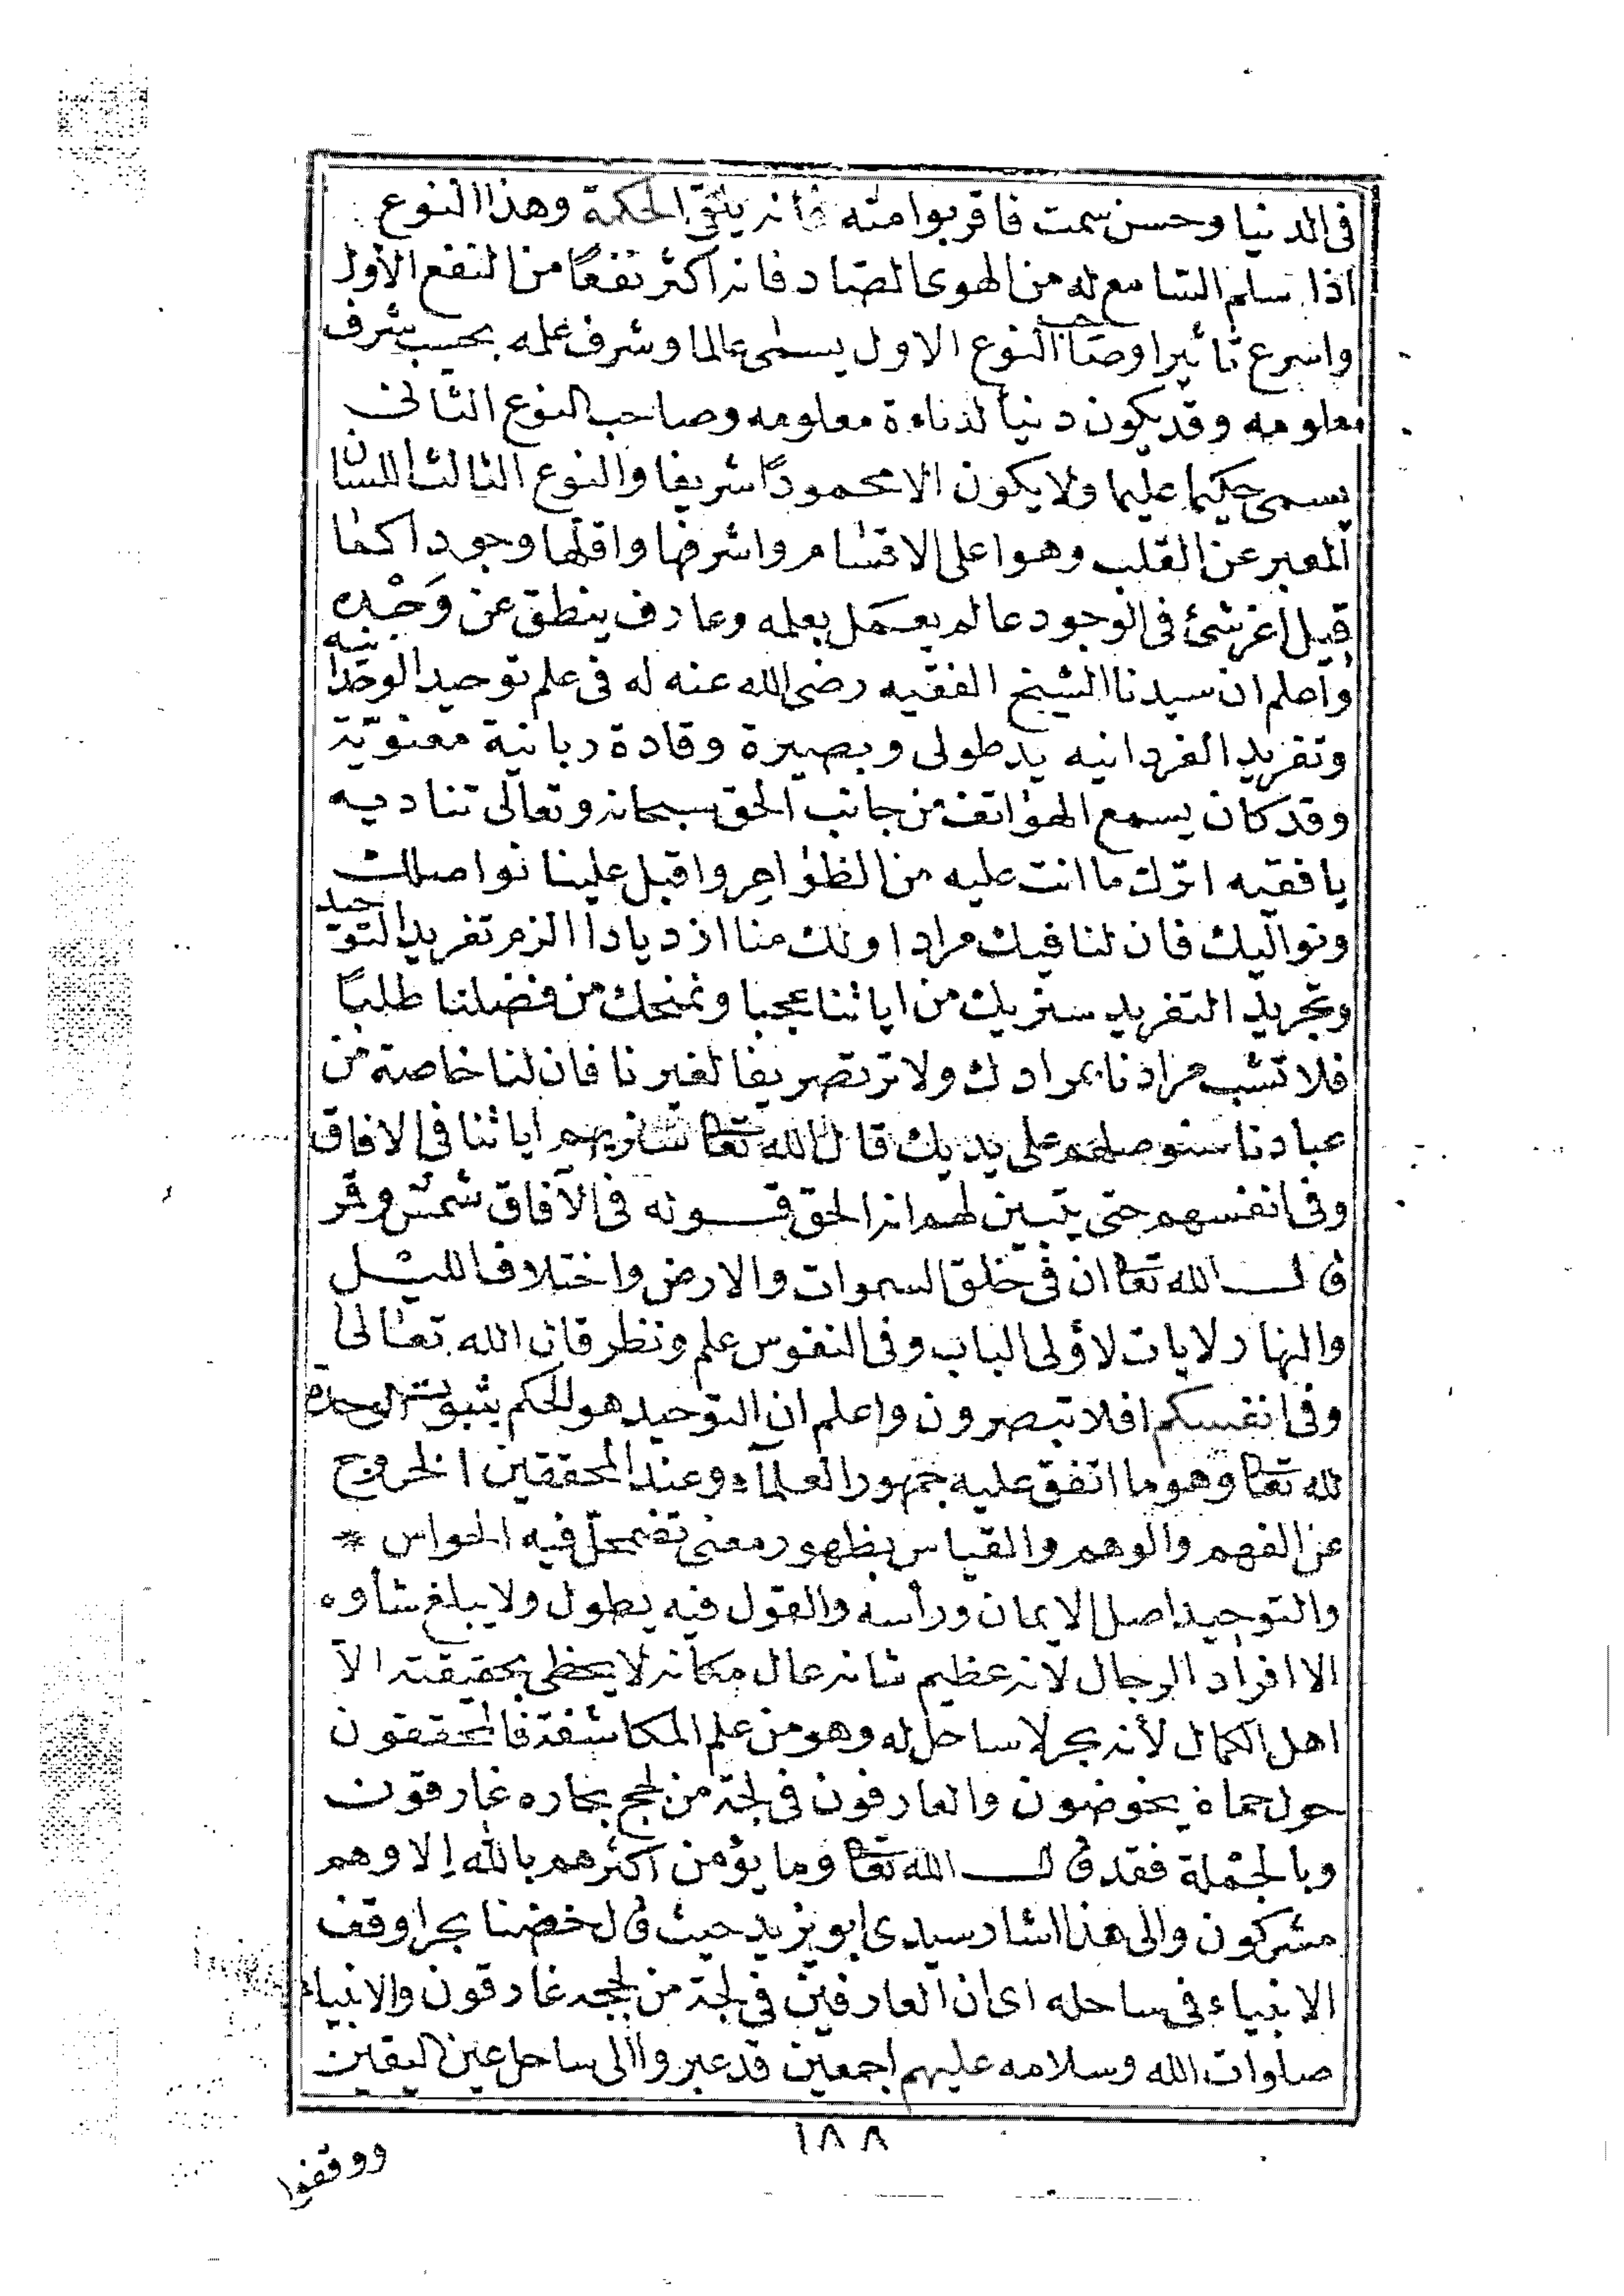 فى الدنيا وحسن سمت فاقربوا منه فانه يلقى الحكمة وهذا النوع
اذا سلم السامع له من الهوى الصاد فانه اكثر نفعًا من النفع الأول
واسرع تأثيرا وصاحب النوع الاول يسمى عالما وشرف علمه بحسب شرف
معلومه وقد يكون دنيأ لدناءة معلومه وصاحب النوع الثانى
يسمى حكيما عليما ولا يكون الا محمودًا شريفا والنوع الثالث اللسان
المعبر عن القلب وهو اعلى الاقسام واشرفها واقلها وجودا كما
قيل اعز شئ فى الوجود عالم يعمل بعلمه وعارف ينطق عن وَجْده
واعلم ان سيدنا الشيخ الفقيه رضى الله عنه له فى علم توحيد الوحدانيه
وتفريد الفردانيه يد طولى وبصيرة وقادة ربانية معنويّة
وقد كان يسمع الهواتف من جانب الحق سبحانه وتعالى تناديه
يا فقيه اترك ما انت عليه من الظواهر واقبل علينا نواصلك
ونواليك فان لنا فيك مرادا ولك منا ازديادا الزم تفريد التوحيد
وتجريد التفريد سنريك من اياتنا عجبا ونمنحك من فضلنا طلبًا
فلا تشب مرادنا بمرادك ولا تر تصريفا لغيرنا فان لنا خاصة من
عبادنا سنوصلهم على يديك قال الله تعا سنريهم اياتنا فى الافاق
وفى انفسهم حتى يتبين لهم انه الحق قوله فى الآفاق شمس وقمر
قال الله تعا ان فى خلق السموات والارض واختلاف الليل
والنهار لايات لاولى الباب وفى النفوس علم ونظر قال الله تعالى
وفى انفسكم افلا تبصرون واعلم ان التوحيد هو الحكم بثبوت الوحدة
لله تعا وهو ما اتفق عليه جمهور العلمآء وعند المحققين الخروج
عن الفهم والوهم والقياس بظهور معنى تضمحل فيه الحواس *
والتوحيد اصل الايمان ورأسه والقول فيه يطول ولا يبلغ شأوه
الا افراد الرجال لانه عظيم شانه عال مكانه لا يحظى بحقيقته الاّ
اهل الكمال لأنه بحر لا ساحل له وهو من علم المكاشفة فالمحققون
حول حماه يخوضون والعارفون فى لجة من لجج بحاره غارقون
وبالجملة فقد قال الله تعا وما يؤمن اكثرهم بالله إلا وهم
مشركون والى هذا اشار سيدى ابو يزيد حيث قال خضنا بحرا وقف
الانبياء فى ساحله اى ان العارفين فى لجة من لججه غارقون والانبياء
صلوات الله وسلامه عليهم اجمعين قد عبروا الى ساحل عين اليقين
١٨٨
ووقفوا